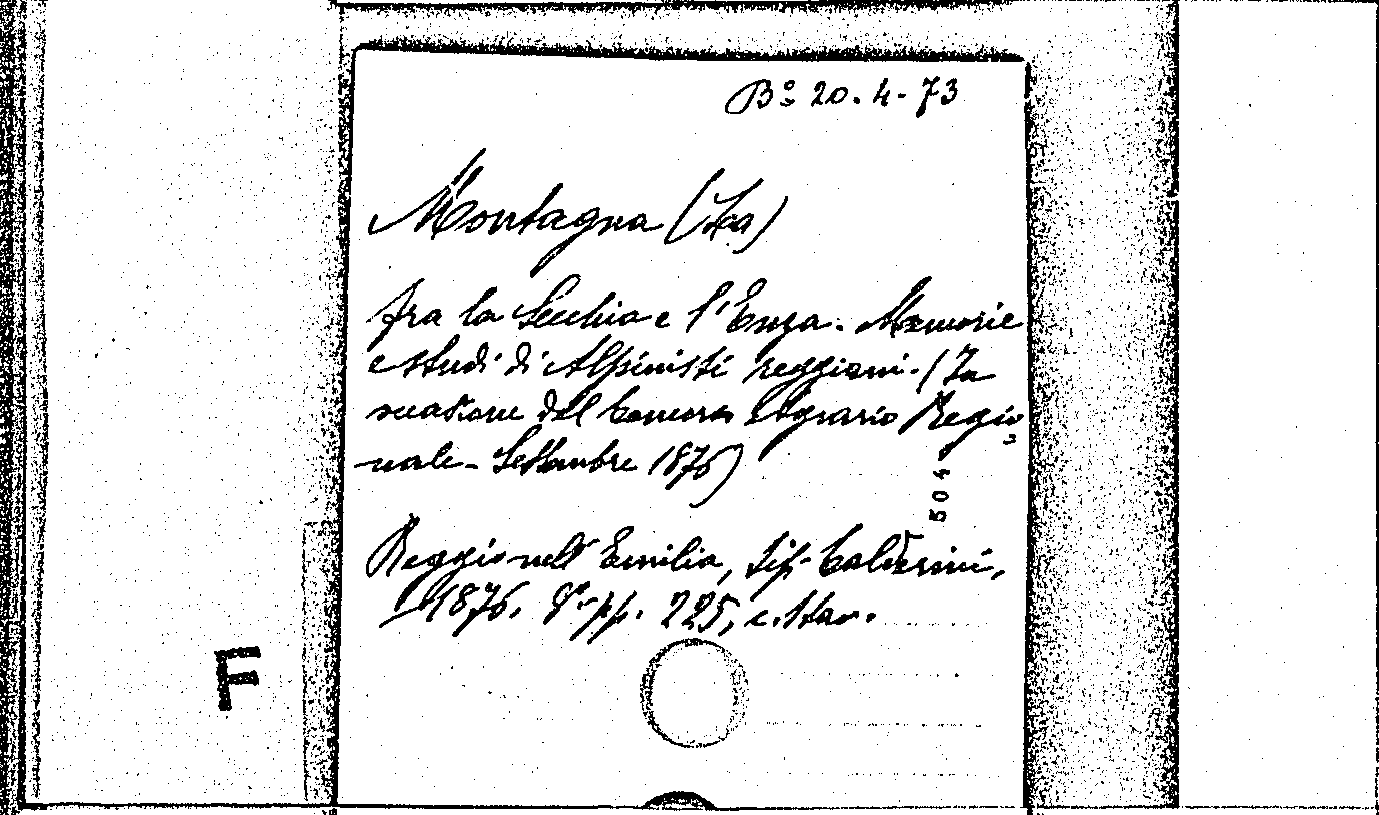 Bº 20.4-73
Montagna (La)
fra la Secchia e l'Enza. Memorie
e studi di Alpinisti reggiani. (In
del Agrario Regio
nale - Settembre 1876)
504
Reggio nell'Emilia, tip. Calderini,
1876. 8º pp. 225, c. 1 tav.
F